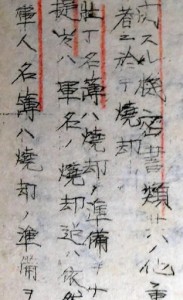 スル機密書類其ノ他重
着ニ於テ焼却
壮丁名簿ハ焼却ノ準備ヲ
提出ハ軍名ノ焼却迄ハ依然
軍人名簿ハ焼却ノ準備ヲ